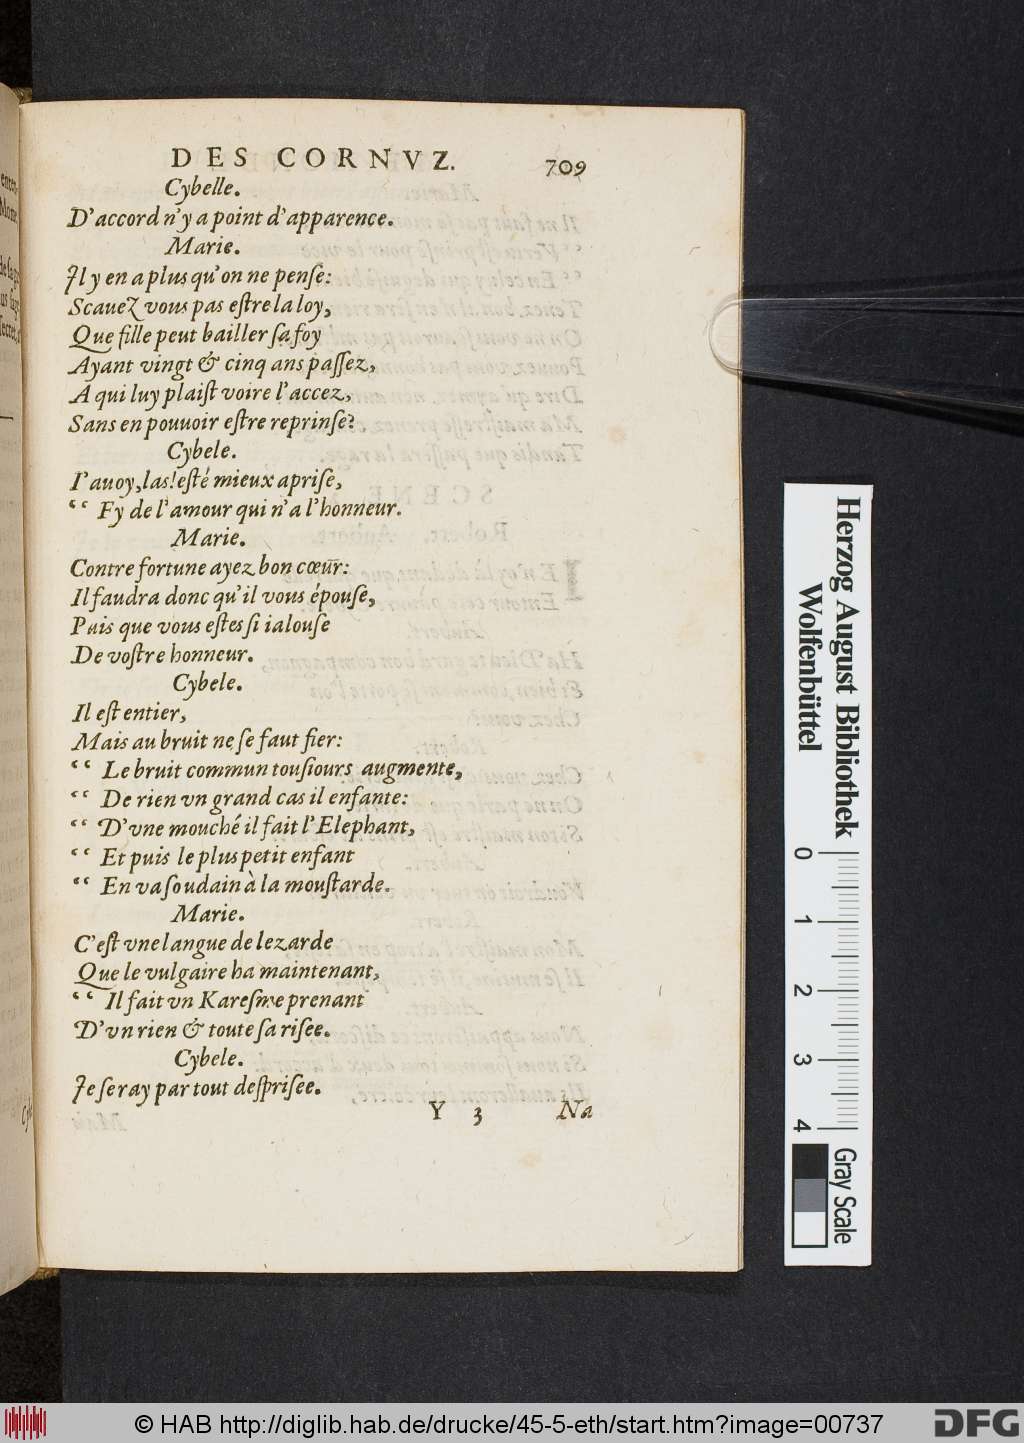 DES CORNVZ. 709
Cybelle.
D'accord n'y a point d'apparence.
Marie.
Il y en a plus qu'on ne penſe:
Scauez vous pas eſtre la loy,
Que fille peut bailler ſa foy
Ayant vingt & cinq ans paſſez,
A qui luy plaiſt voire l'accez,
Sans en pouuoir eſtre reprinſe?
Cybele.
I'auoy, las! eſté mieux apriſe,
“ Fy de l'amour qui n'a l'honneur.
Marie.
Contre fortune ayez bon cœur:
Il faudra donc qu'il vous épouſe,
Puis que vous eſtes ſi ialouſe
De voſtre honneur.
Cybele.
Il eſt entier,
Mais au bruit ne ſe faut fier:
“ Le bruit commun touſiours augmente,
“ De rien vn grand cas il enfante:
“ D'vne mouché il fait l'Elephant,
“ Et puis le plus petit enfant
“ En va ſoudain à la mouſtarde.
Marie.
C'eſt vne langue de lezarde
Que le vulgaire ha maintenant,
“ Il fait vn Kareſme prenant
D'vn rien & toute ſa riſee.
Cybele.
Je ſeray par tout deſpriſee.
Y 3 Na
Herzog August Bibliothek
Wolfenbüttel
0 1 2 3 4
Gray Scale
© HAB http://diglib.hab.de/drucke/45-5-eth/start.htm?image=00737
DFG